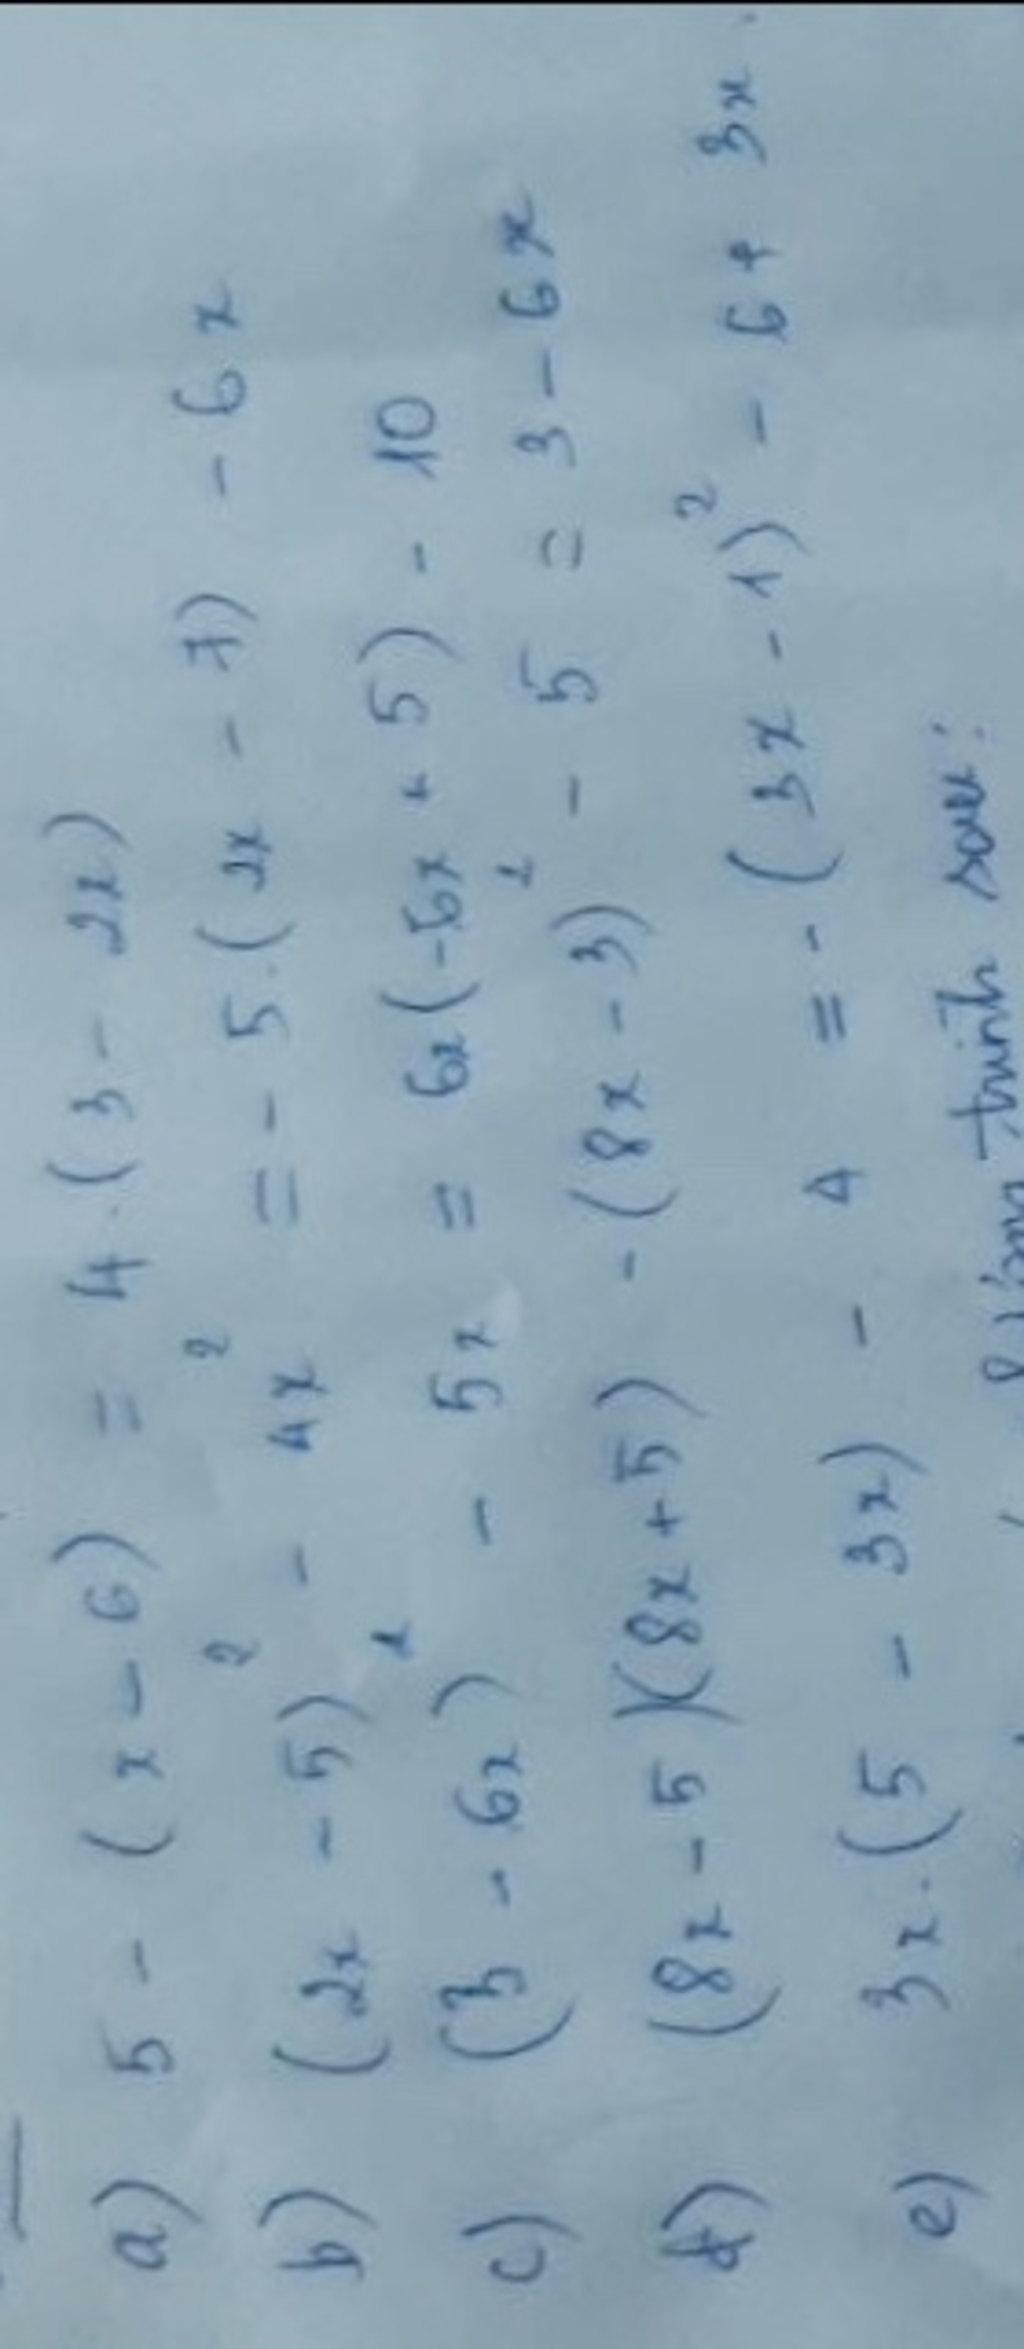 a) 5 - (x - 6) = 4.(3 - 2x)
b) (2x - 5)² - 4x² = - 5.(2x - 7) - 6x
c) (3 - 6x)² - 5x = 6x(-6x + 5) - 10
d) (8x - 5)(8x + 5) - (8x - 3)² - 5 = 3 - 6x
e) 3x.(5 - 3x) - 4 = - (3x - 1)² - 6 + 3x.
trình sau: